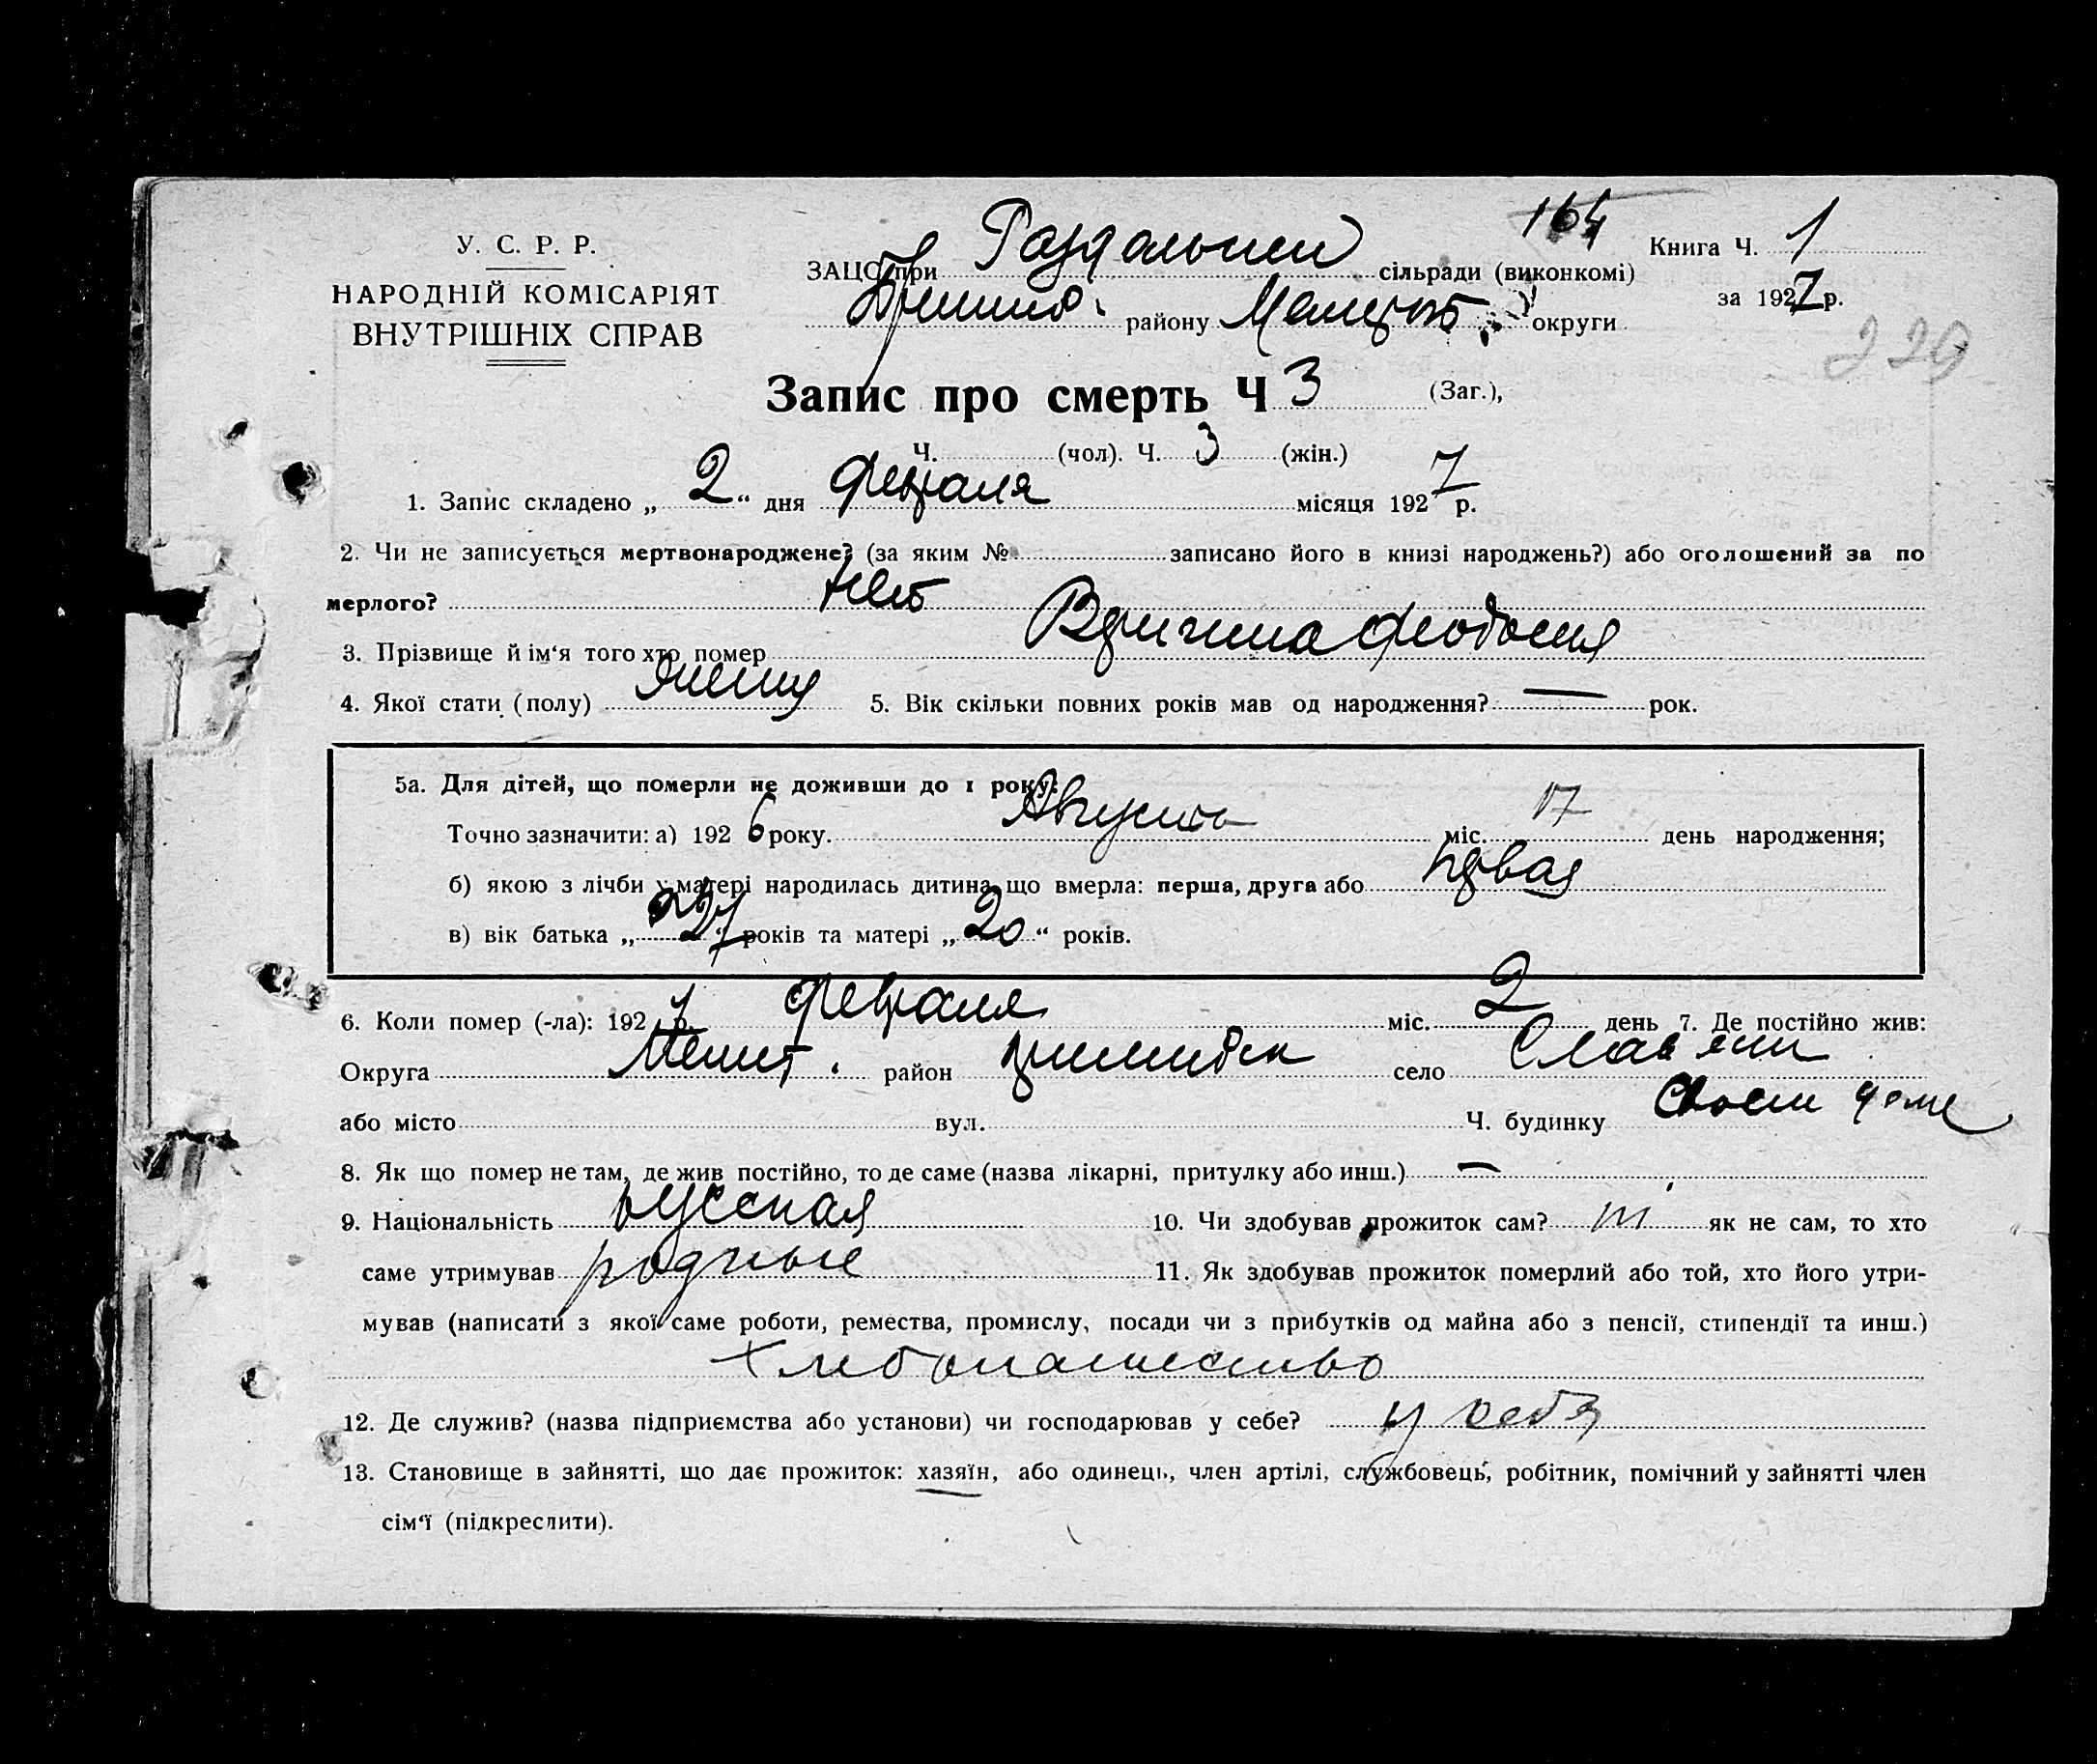 164
У. С. Р. Р.
НАРОДНІЙ КОМІСАРІЯТ
ВНУТРІШНІХ СПРАВ
ЗАЦС при сільради (виконкомі)
Книга Ч. 1
району округи
за 1927 р.
229
Запис про смерть Ч 3 (Заг.),
Ч. (чол). Ч. 3 (жін.)
1. Запис складено „ 2 “ дня февраля місяця 1927 р.
2. Чи не записується мертвонароджене? (за яким № записано його в книзі народжень?) або оголошений за по
мерлого? Нет
3. Прізвище й ім‘я того хто помер Феодосия
4. Якої стати (полу) 5. Вік скільки повних років мав од народження? — рок.
5а. Для дітей, що померли не доживши до 1 року:
Точно зазначити: а) 1926 року. Августа міс. 17 день народження;
б) якою з лічби у матері народилась дитина, що вмерла: перша, друга або первая
в) вік батька „ 27 “ років та матері „ 20 “ років.
6. Коли помер (-ла): 1927 р. февраля міс. 2 день 7. Де постійно жив:
Округа Мелит. район село
або місто вул. Ч. будинку Своем доме
8. Як що помер не там, де жив постійно, то де саме (назва лікарні, притулку або инш.) —
9. Національність русская 10. Чи здобував прожиток сам? ні як не сам, то хто
саме утримував родные 11. Як здобував прожиток померлий або той, хто його утри-
мував (написати з якої саме роботи, ремества, промислу, посади чи з прибутків од майна або з пенсії, стипендії та инш.)
хлебопашество
12. Де служив? (назва підприємства або установи) чи господарював у себе? у себя
13. Становище в зайнятті, що дає прожиток: хазяїн, або одинець, член артілі, службовець, робітник, помічний у зайнятті член
сім‘ї (підкреслити).